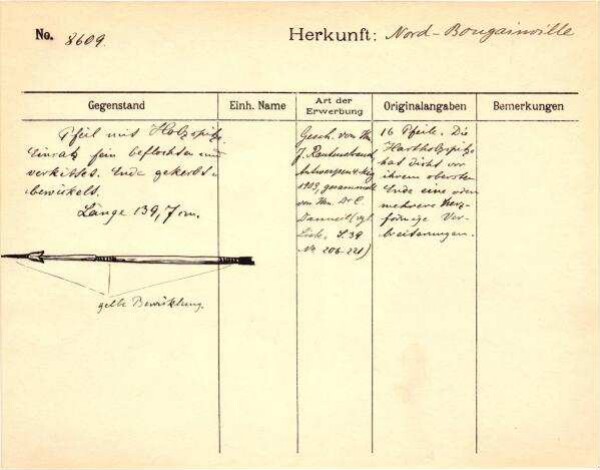 No. 8609.
Herkunft: Nord-Bougainville
Gegenstand
Einh. Name
Art der Erwerbung
Originalangaben
Bemerkungen
Pfeil mit Holzspitze.
Einsatz fein beflochten und
verkittet. Ende gekerbt u.
bewickelt.
Länge 139,7 cm.
gelbe Bewicklung.
Gesch. von Hn.
J.
1903, gesammelt
von Hn. Dr. E.
(vgl.
S. 39
Nr. 206-221)
16 Pfeile. Die
Hartholzspitze
hat dicht vor
ihrem obersten
Ende eine oder
mehrere
förmige Ver-
breiterungen.